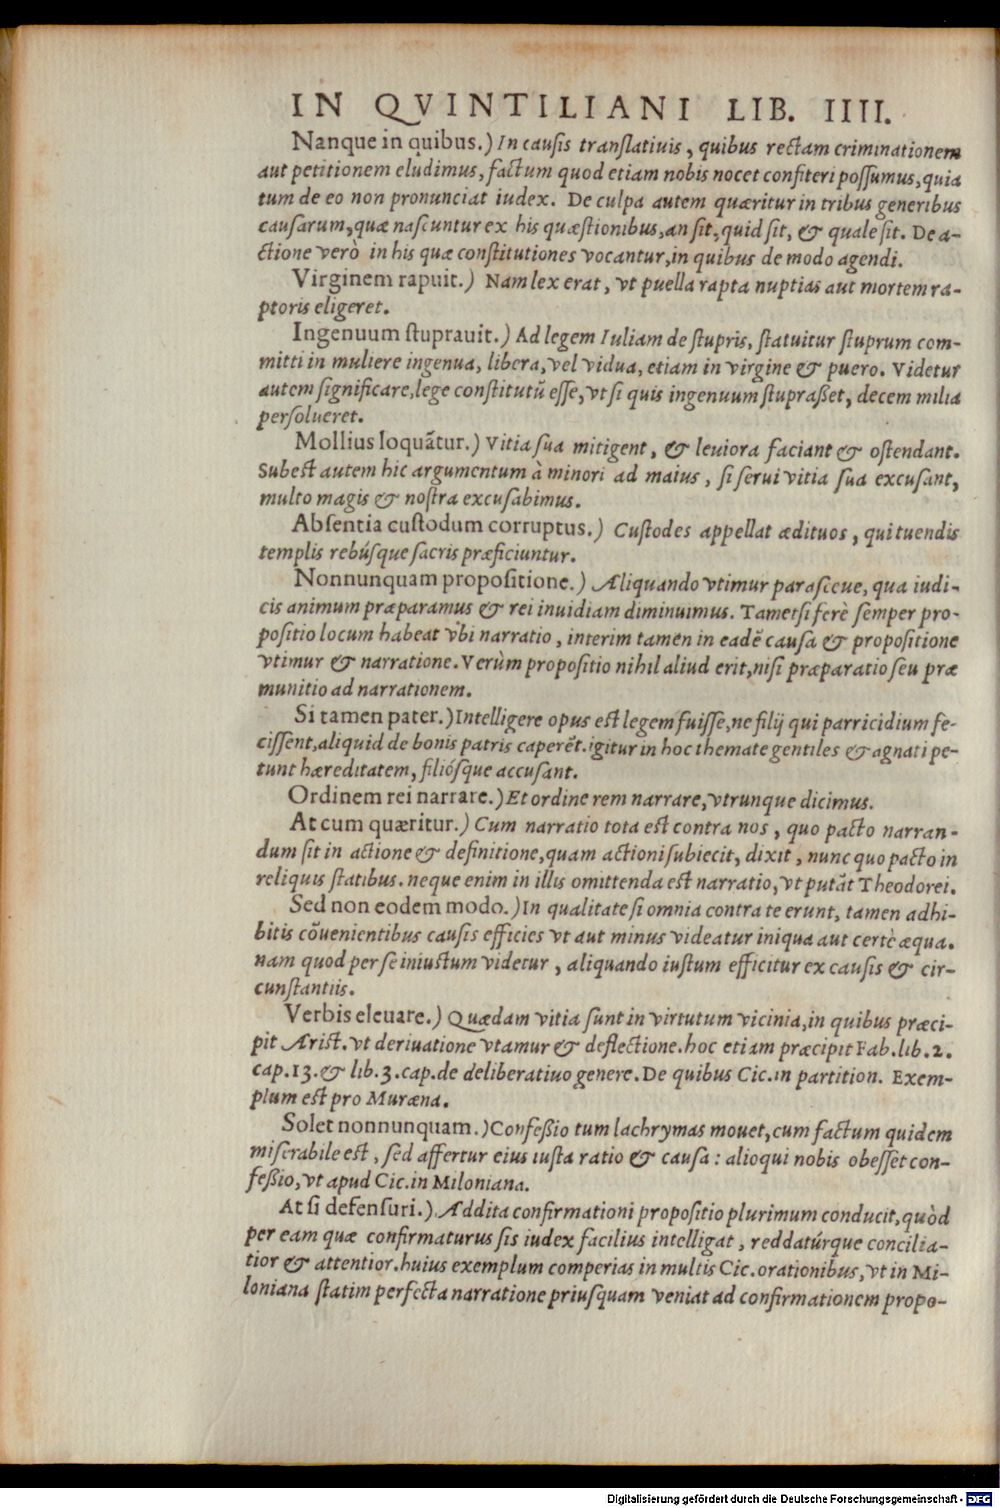 IN QVINTILIANI LIB. IIII.
Nanque in quibus.) In causis translatiuis, quibus rectam criminationem
aut petitionem eludimus, factum quod etiam nobis nocet confiteri possumus, quia
tum de eo non pronunciat iudex. De culpa autem quæritur in tribus generibus
causarum, quæ nascuntur ex his quæstionibus, an sit, quid sit, & quale sit. De a-
ctione verò in his quæ constitutiones vocantur, in quibus de modo agendi.
Virginem rapuit.) Nam lex erat, vt puella rapta nuptias aut mortem ra-
ptoris eligeret.
Ingenuum stuprauit.) Ad legem Iuliam de stupris, statuitur stuprum com-
mitti in muliere ingenua, libera, vel vidua, etiam in virgine & puero. Videtur
autem significare, lege constitutũ esse, vt si quis ingenuum stupraßet, decem milia
persolueret.
Mollius loquãtur.) Vitia sua mitigent, & leuiora faciant & ostendant.
Subest autem hic argumentum à minori ad maius, si serui vitia sua excusant,
multo magis & nostra excusabimus.
Absentia custodum corruptus.) Custodes appellat ædituos, qui tuendis
templis rebúsque sacris præficiuntur.
Nonnunquam propositione.) Aliquando vtimur parasceue, qua iudi-
cis animum præparamus & rei inuidiam diminuimus. Tametsi ferè semper pro-
positio locum habeat vbi narratio, interim tamen in eadẽ causa & propositione
vtimur & narratione. Verùm propositio nihil aliud erit, nisi præparatio seu præ
munitio ad narrationem.
Si tamen pater.) Intelligere opus est legem fuisse, ne filij qui parricidium fe-
cissent, aliquid de bonis patris caperẽt. igitur in hoc themate gentiles & agnati pe-
tunt hæreditatem, filiósque accusant.
Ordinem rei narrare.) Et ordine rem narrare, vtrunque dicimus.
At cum quæritur.) Cum narratio tota est contra nos, quo pacto narran-
dum sit in actione & definitione, quam actioni subiecit, dixit, nunc quo pacto in
reliquis statibus. neque enim in illis omittenda est narratio, vt putãt Theodorei.
Sed non eodem modo.) In qualitate si omnia contra te erunt, tamen adhi-
bitis cõuenientibus causis efficies vt aut minus videatur iniqua aut certè æqua.
nam quod per se iniustum videtur, aliquando iustum efficitur ex causis & cir-
cunstantiis.
Verbis eleuare.) Quædam vitia sunt in virtutum vicinia, in quibus præci-
pit Arist. vt deriuatione vtamur & deflectione. hoc etiam præcipit Fab. lib. 2.
cap. 13. & lib. 3. cap. de deliberatiuo genere. De quibus Cic. in partition. Exem-
plum est pro Muræna.
Solet nonnunquam.) Confeßio tum lachrymas mouet, cum factum quidem
miserabile est, sed affertur eius iusta ratio & causa: alioqui nobis obesset con-
feßio, vt apud Cic. in Miloniana.
At si defensuri.) Addita confirmationi propositio plurimum conducit, quòd
per eam quæ confirmaturus sis iudex facilius intelligat, reddatúrque concilia-
tior & attentior. huius exemplum comperias in multis Cic. orationibus, vt in Mi-
loniana statim perfecta narratione priusquam veniat ad confirmationem propo-
Digitalisierung gefördert durch die Deutsche Forschungsgemeinschaft - DFG